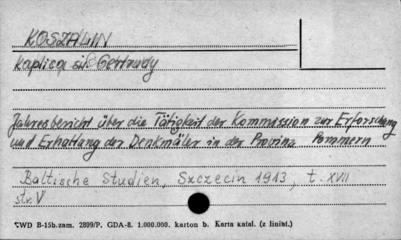 KOSZALIN
Kaplica św. Gertrudy
Jahresbericht über die Tätigkeit der Kommission zur Erforschung
und Erhaltung der Denkmäler in der Provinz Pommern
Baltische Studien, Szczecin 1913, t. XVII
str. V
ZWD B-15b.zam. 2899/P. GDA-8. 1.000.000. karton b. Karta katal. (z liniat.)